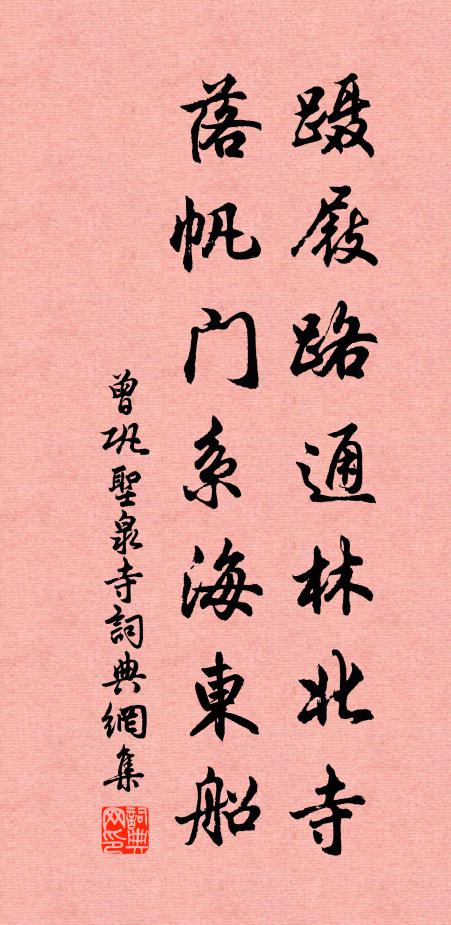 蹑屐路通林北寺
落帆门系海东船
曾巩圣泉寺词典网集
词典网印